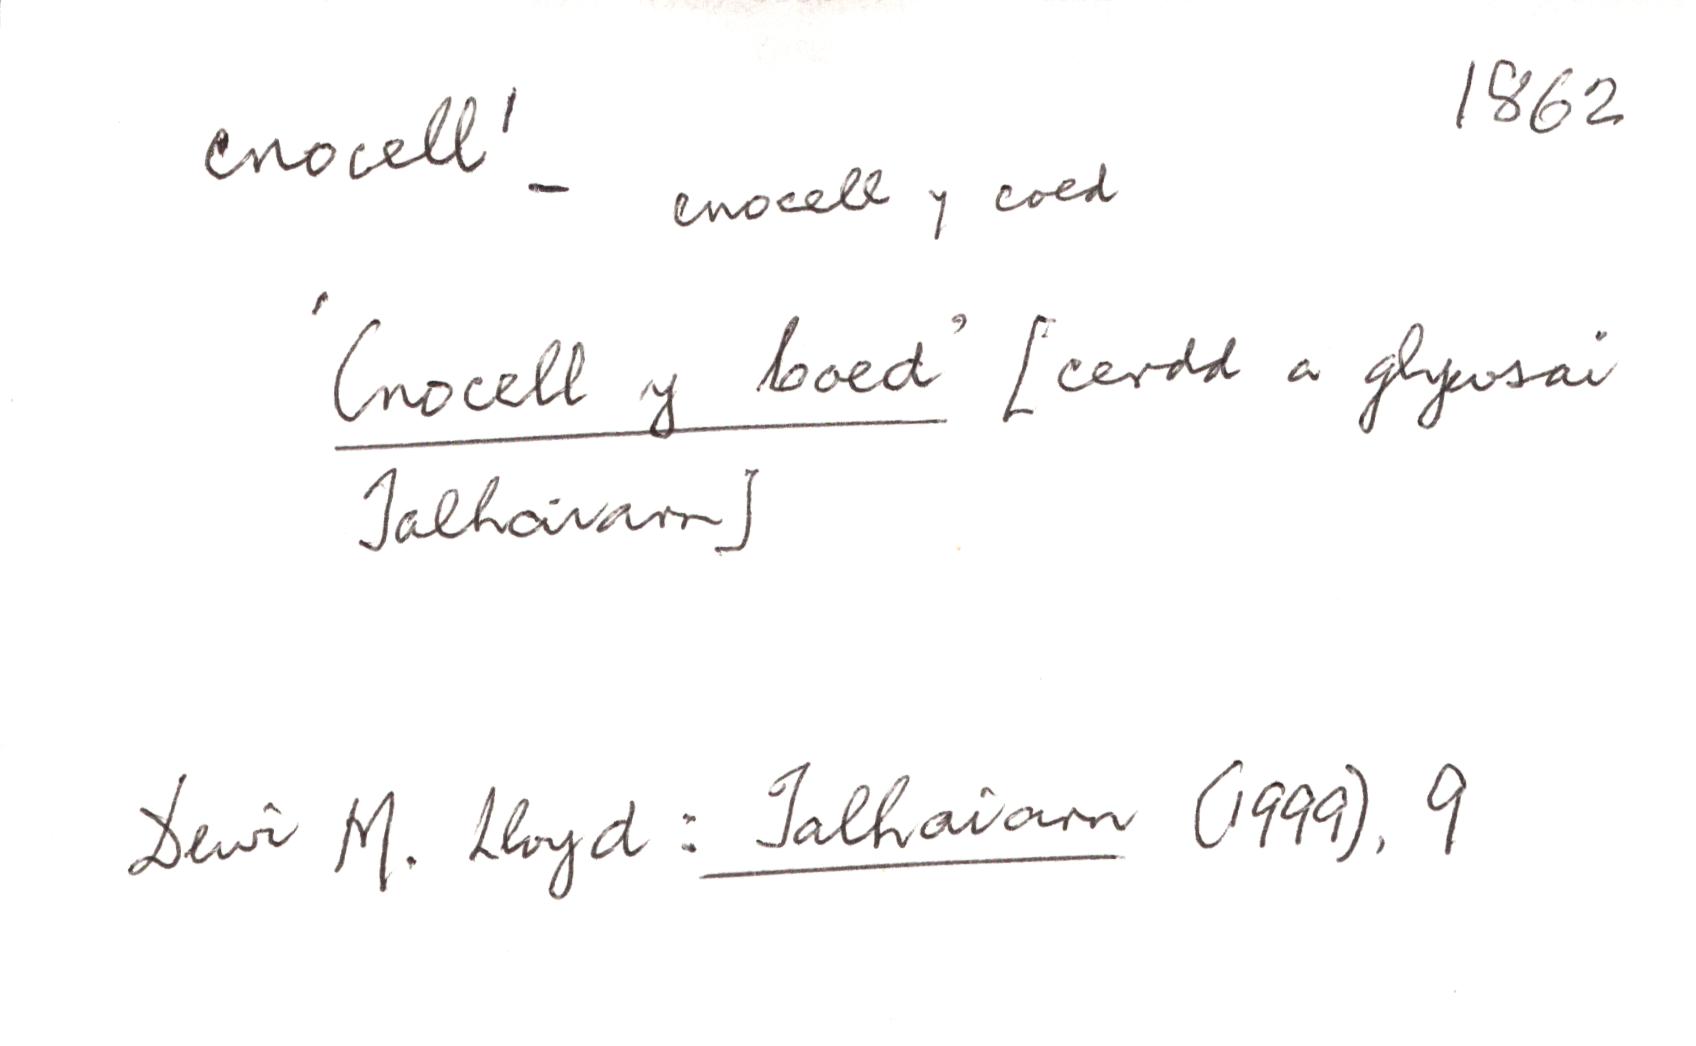 1862
cnocell¹ – cnocell y coed
'Cnocell y Coed' [cerdd a glywsai
Talhaiarn]
Dewi M. Lloyd: Talhaiarn (1999), 9